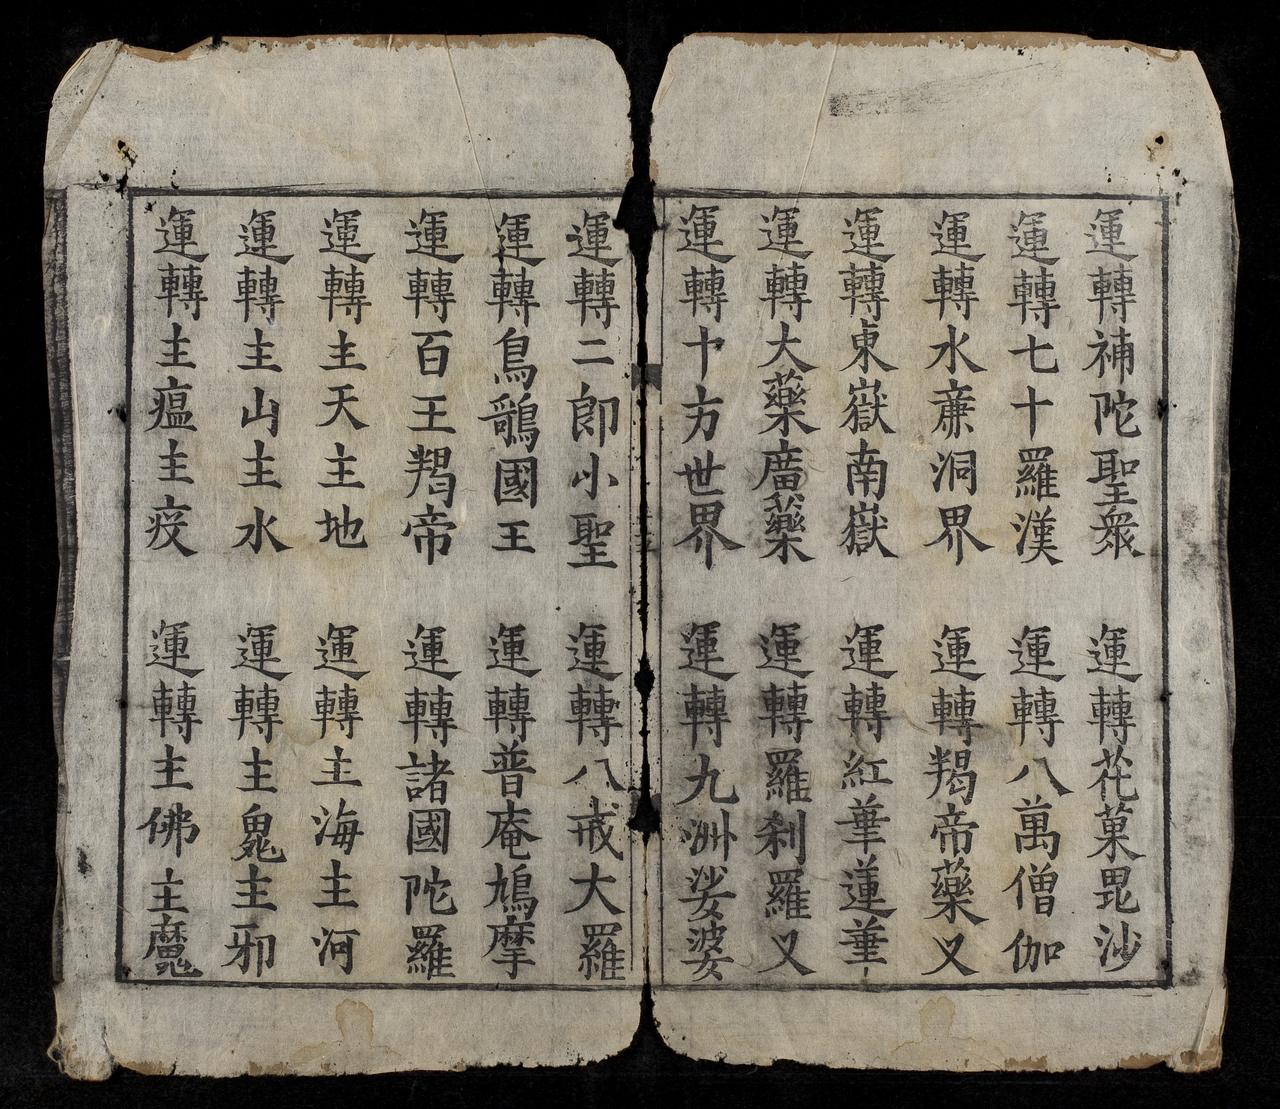 運轉補陀聖衆 運轉花菓毘沙
運轉七十羅漢 運轉八萬僧伽
運轉水㢘洞界 運轉羯帝藥叉
運轉東嶽南嶽 運轉紅華蓮華
運轉大藥廣藥 運轉羅刹羅叉
運轉十方世界 運轉九洲娑婆
運轉二郎小聖 運轉八戒大羅
運轉烏鷄國王 運轉普庵鳩摩
運轉百王羯帝 運轉諸國陀羅
運轉主天主地 運轉主海主河
運轉主山主水 運轉主鬼主邪
運轉主瘟主疫 運轉主佛主魔